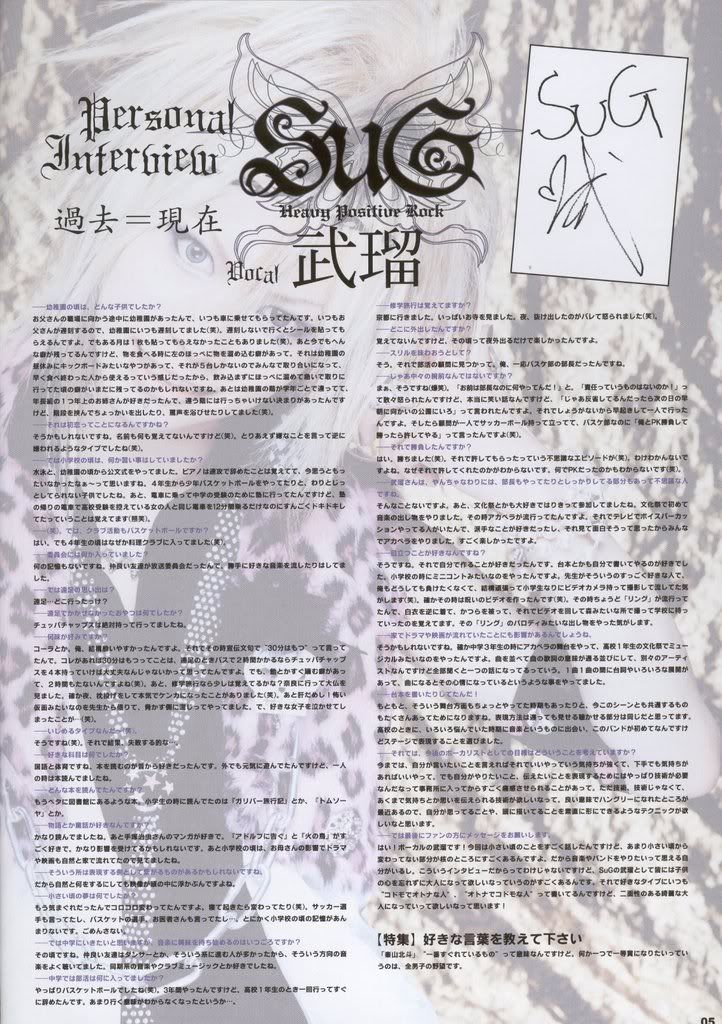 Personal
Interview
過去＝現在
SuG
Heavy Positive Rock
Vocal
武瑠
SuG
――幼稚園の頃は、どんな子供でしたか？
お父さんの職場に向かう途中に幼稚園があったんで、いつも車に乗せてもらってたんです。いつもお
父さんが遅刻するので、幼稚園にいつも遅刻してました(笑)。遅刻しないで行くとシールを貼っても
らえるんですよ。でもある月は1枚も貼ってもらえなかったこともありました(笑)。あと今でもへん
な癖が残ってるんですけど、物を食べる時に左のほっぺに物を溜め込む癖があって、それは幼稚園の
昼休みにキックボードみたいなやつがあって、それが5台しかないのでみんなで取り合いになって、
早く食べ終わった人から使えるっていう感じだったから、飲み込まずにほっぺに溜めて急いで取りに
行ってた頃の癖がいまだに残ってるのかもしれないですね。あとは幼稚園の階が学年ごとで違ってて、
年長組の1つ年上のお姉さんが好きだったんで、違う階には行っちゃいけない決まりがあったんです
けど、階段を挟んでちょっかいを出したり、罵声を浴びせたりしてました(笑)。
――それは初恋ってことになるんですかね？
そうかもしれないですね。名前も何も覚えてないんですけど(笑)、とりあえず嫌なことを言って逆に
嫌われるようなタイプでしたね(笑)。
――では小学校の頃は、何か習い事はしていましたか？
水泳と、幼稚園の頃から公文式をやってました。ピアノは速攻で辞めたことは覚えてて、今思うともっ
たいなかったなぁ～って思いますね。4年生から少年バスケットボールをやってたりと、わりとじっ
としてられない子供でしたね。あと、電車に乗って中学の受験のために塾に行ってたんですけど、塾
の帰りの電車で高校受験を控えている女の人と同じ電車を12分間乗るだけなのにすんごくドキドキし
てたっていうことは覚えてます(照笑)。
――(笑)。では、クラブ活動もバスケットボールですか？
はい。でも4年生の頃はなぜか料理クラブに入ってました(笑)。
――委員会には何か入っていました？
何の記憶もないですね。仲良い友達が放送委員だったんで、勝手に好きな音楽を流したりはしてま
した。
――では遠足の思い出は？
遠足…どこ行ったっけ？
――遠足でかかせなかったおやつは何でしたか？
チュッパチャップスは絶対持って行ってましたね。
――何味が好みですか？
コーラとか。俺、結構酔いやすかったんですよ。それでその時宣伝文句で“30分はもつ”って言って
たんで、コレがあれば30分はもつってことは、遠足のときバスで2時間かかるならチュッパチャップ
スを4本持っていけば大丈夫なんじゃないかって思ってたんですよ。でも、飴とかすぐ噛む癖があっ
て、2時間もたないんですよね(笑)。あと、修学旅行なら少しは覚えてるかな？奈良に行って大仏を
見ました。確か夜、枕投げをして本気でケンカになったことがありました(笑)。あと肝だめし！怖い
仮面みたいなのを先生から借りて、脅かす側に回ってやってました。で、好きな女子を泣かせてし
まったことが…(笑)。
――いじめるタイプなんだ～(笑)。
そうですね(笑)。それで結果、失敗する的な…。
――好きな科目は何でしたか？
国語と体育ですね。本を読むのが昔から好きだったんです。外でも元気に遊んでたんですけど、一人
の時は本読んでましたね。
――どんな本を読んでたんですか？
もうベタに図書館にあるような本。小学生の時に読んでたのは『ガリバー旅行記』とか、『トムソー
ヤ』とか。
――物語とか童話が好きなんですか？
かなり読んでましたね。あと手塚治虫さんのマンガが好きで、『アドルフに告ぐ』と『火の鳥』がす
ごく好きで、かなり影響を受けてるかもしれないです。あと小学校の頃は、お母さんの影響でドラマ
や映画も自然と家で流れてたので見てましたね。
――そういう所は表現する側として繋がるものがあるかもしれないですね。
だから自然と何をするにしても映像が頭の中に浮かぶんですよね。
――小さい頃の夢は何でしたか？
もう気まぐれだったんでコロコロ変わってたんですよ。寝て起きたら変わってたり(笑)。サッカー選
手も言ってたし、バスケットの選手、お医者さんも言ってたし…。とにかく小学校の頃の記憶があん
まりないです。ごめんさない。
――では中学にいきたいと思いますが、音楽に興味を持ち始めるのはいつごろですか？
その頃ですね。仲良い友達はダンサーとか、そういう系に進む人が多かったから、そういう方向の音
楽をよく聴いてました。同期系の音楽やクラブミュージックとか好きでしたね。
――中学では部活は何に入ってましたか？
やっぱりバスケットボールでしたね(笑)。3年間やったんですけど、高校1年生のとき一回行ってすぐ
に辞めたんです。あまり行く意味がわからなくなったというか…。
――修学旅行は覚えてますか？
京都に行きました。いっぱいお寺を見ました。夜、抜け出したのがバレて怒られました(笑)。
――どこに外出したんですか？
覚えてないんですけど、その頃って夜外出るだけで楽しかったんですよ。
――スリルを味わおうとして？
そう、それで部活の顧問に見つかって。俺、一応バスケ部の部長だったんですね。
――じゃあ中々の説教なんではないですか？
まぁ、そうですね(爆笑)。「お前は部長なのに何やってんだ！」と。「責任っていうものはないのか！」っ
て散々怒られたんですけど、本当に笑い話なんですけど、「じゃあ反省してるんだったら次の日の早
朝に向かいの公園にいろ」って言われたんですよ。それでしょうがないから早起きして一人で行った
んですよ。そしたら顧問が一人でサッカーボール持って立ってて、バスケ部なのに「俺とPK勝負して
勝ったら許してやる」って言ったんですよ(笑)。
――それで勝負したんですか？
はい。勝ちました(笑)。それで許してもらったっていう不思議なエピソードが(笑)。わけわかんないで
すよね。なぜそれで許してくれたのかがわからないです。何でPKだったのかもわからないです(笑)。
――武瑠さんは、やんちゃなわりには、部長もやってたりとしっかりしてる部分もあって不思議な人
ですね。
そんなことないですよ。あと、文化祭とかも大好きではりきって参加してましたね。文化祭で初めて
音楽の出し物をやりました。その時アカペラが流行ってたんですよ。それでテレビでボイスパーカッ
ションやってる人がいたんで、派手なことが好きだったし、それ見て面白そうって思ったからみんな
でアカペラをやりました。すごく楽しかったですよ。
――目立つことが好きなんですね？
そうですね。それ自分で作ることが好きだったんです。台本とかも自分で書いてやるのが好きでし
た。小学校の時にミニコントみたいなのをやったんですよ。先生がそういうのすっごく好きな人で、
俺もどうしても負けたくなくて、結構頑張って小学生なりにビデオカメラ持って撮影して流してた気
がします(笑)。確かその時は呪いのビデオを作ったんです(笑)。その時ちょうど『リング』が流行って
たんで、白衣を逆に着て、かつらを被って、それでビデオを回して森みたいな所で撮って学校に持っ
ていったのを覚えてます。その『リング』のパロディみたいな出し物をやった気がします。
――家でドラマや映画が流れていたことにも影響があるんでしょうね。
そうかもしれないですね。確か中学3年生の時にアカペラの舞台をやって、高校1年生の文化祭でミュー
ジカルみたいなのをやったんですよ。曲を並べて曲の歌詞の意味が通る並びにして、別々のアーティ
ストなんですけど全部聴くと一つの話になるっていう。1曲1曲の間に台詞やいろいろな展開が
あって、曲になるとその心情になっているというような事をやってました。
――台本を書いたりしてたんだ！
もともと、そういう舞台方面もちょっとやってた時期もあったりと、今このシーンとも共通するもの
もたくさんあってためになりますね。表現方法は違っても見せる聴かせる部分は同じだと思ってます。
高校のときに、いろいろ悩んでいた時期に音楽というものに出会い、このバンドが初めてなんですけ
どステージで表現することを選びました。
――それでは、今後のボーカリストとしての目標はどういうことを考えていますか？
今までは、自分が言いたいことを言えればそれでいいやっていう気持ちが強くて、下手でも気持ちが
あればいいやって。でも自分がやりたいこと、伝えたいことを表現するためにはやっぱり技術が必要
なんだなって事務所に入ってからすごく痛感させられることがあって。ただ技術、技術じゃなくて、
あくまで気持ちとか思いを伝えられる技術が欲しいなって、良い意味でハングリーになれたところが
最近あるので、自分が思ってることや、頭に描いてることを素直に形にできるようなテクニックが欲
しいなと思います。
――では最後にファンの方にメッセージをお願いします。
はい！ボーカルの武瑠です！今回は小さい頃のことをすごく話したんですけど、あまり小さい頃から
変わってない部分が核のところにすごくあるんですよ。だから音楽やバンドをやりたいって思える自
分がいるし、こういうインタビューだからってわけじゃないですけど、SuGの武瑠として皆には子供
の心を忘れずに大人になって欲しいなっていうのがすごくあるんです。それで好きなタイプにいつも
“コドモでオトナな人”、“オトナでコドモな人”って書いてるんですけど、二面性のある綺麗な大
人になっていって欲しいなって思います！
【特集】好きな言葉を教えて下さい
「泰山北斗」“一番すぐれているもの”って意味なんですけど、何か一つで一等賞になりたいっていう
のは、全男子の野望です。
05